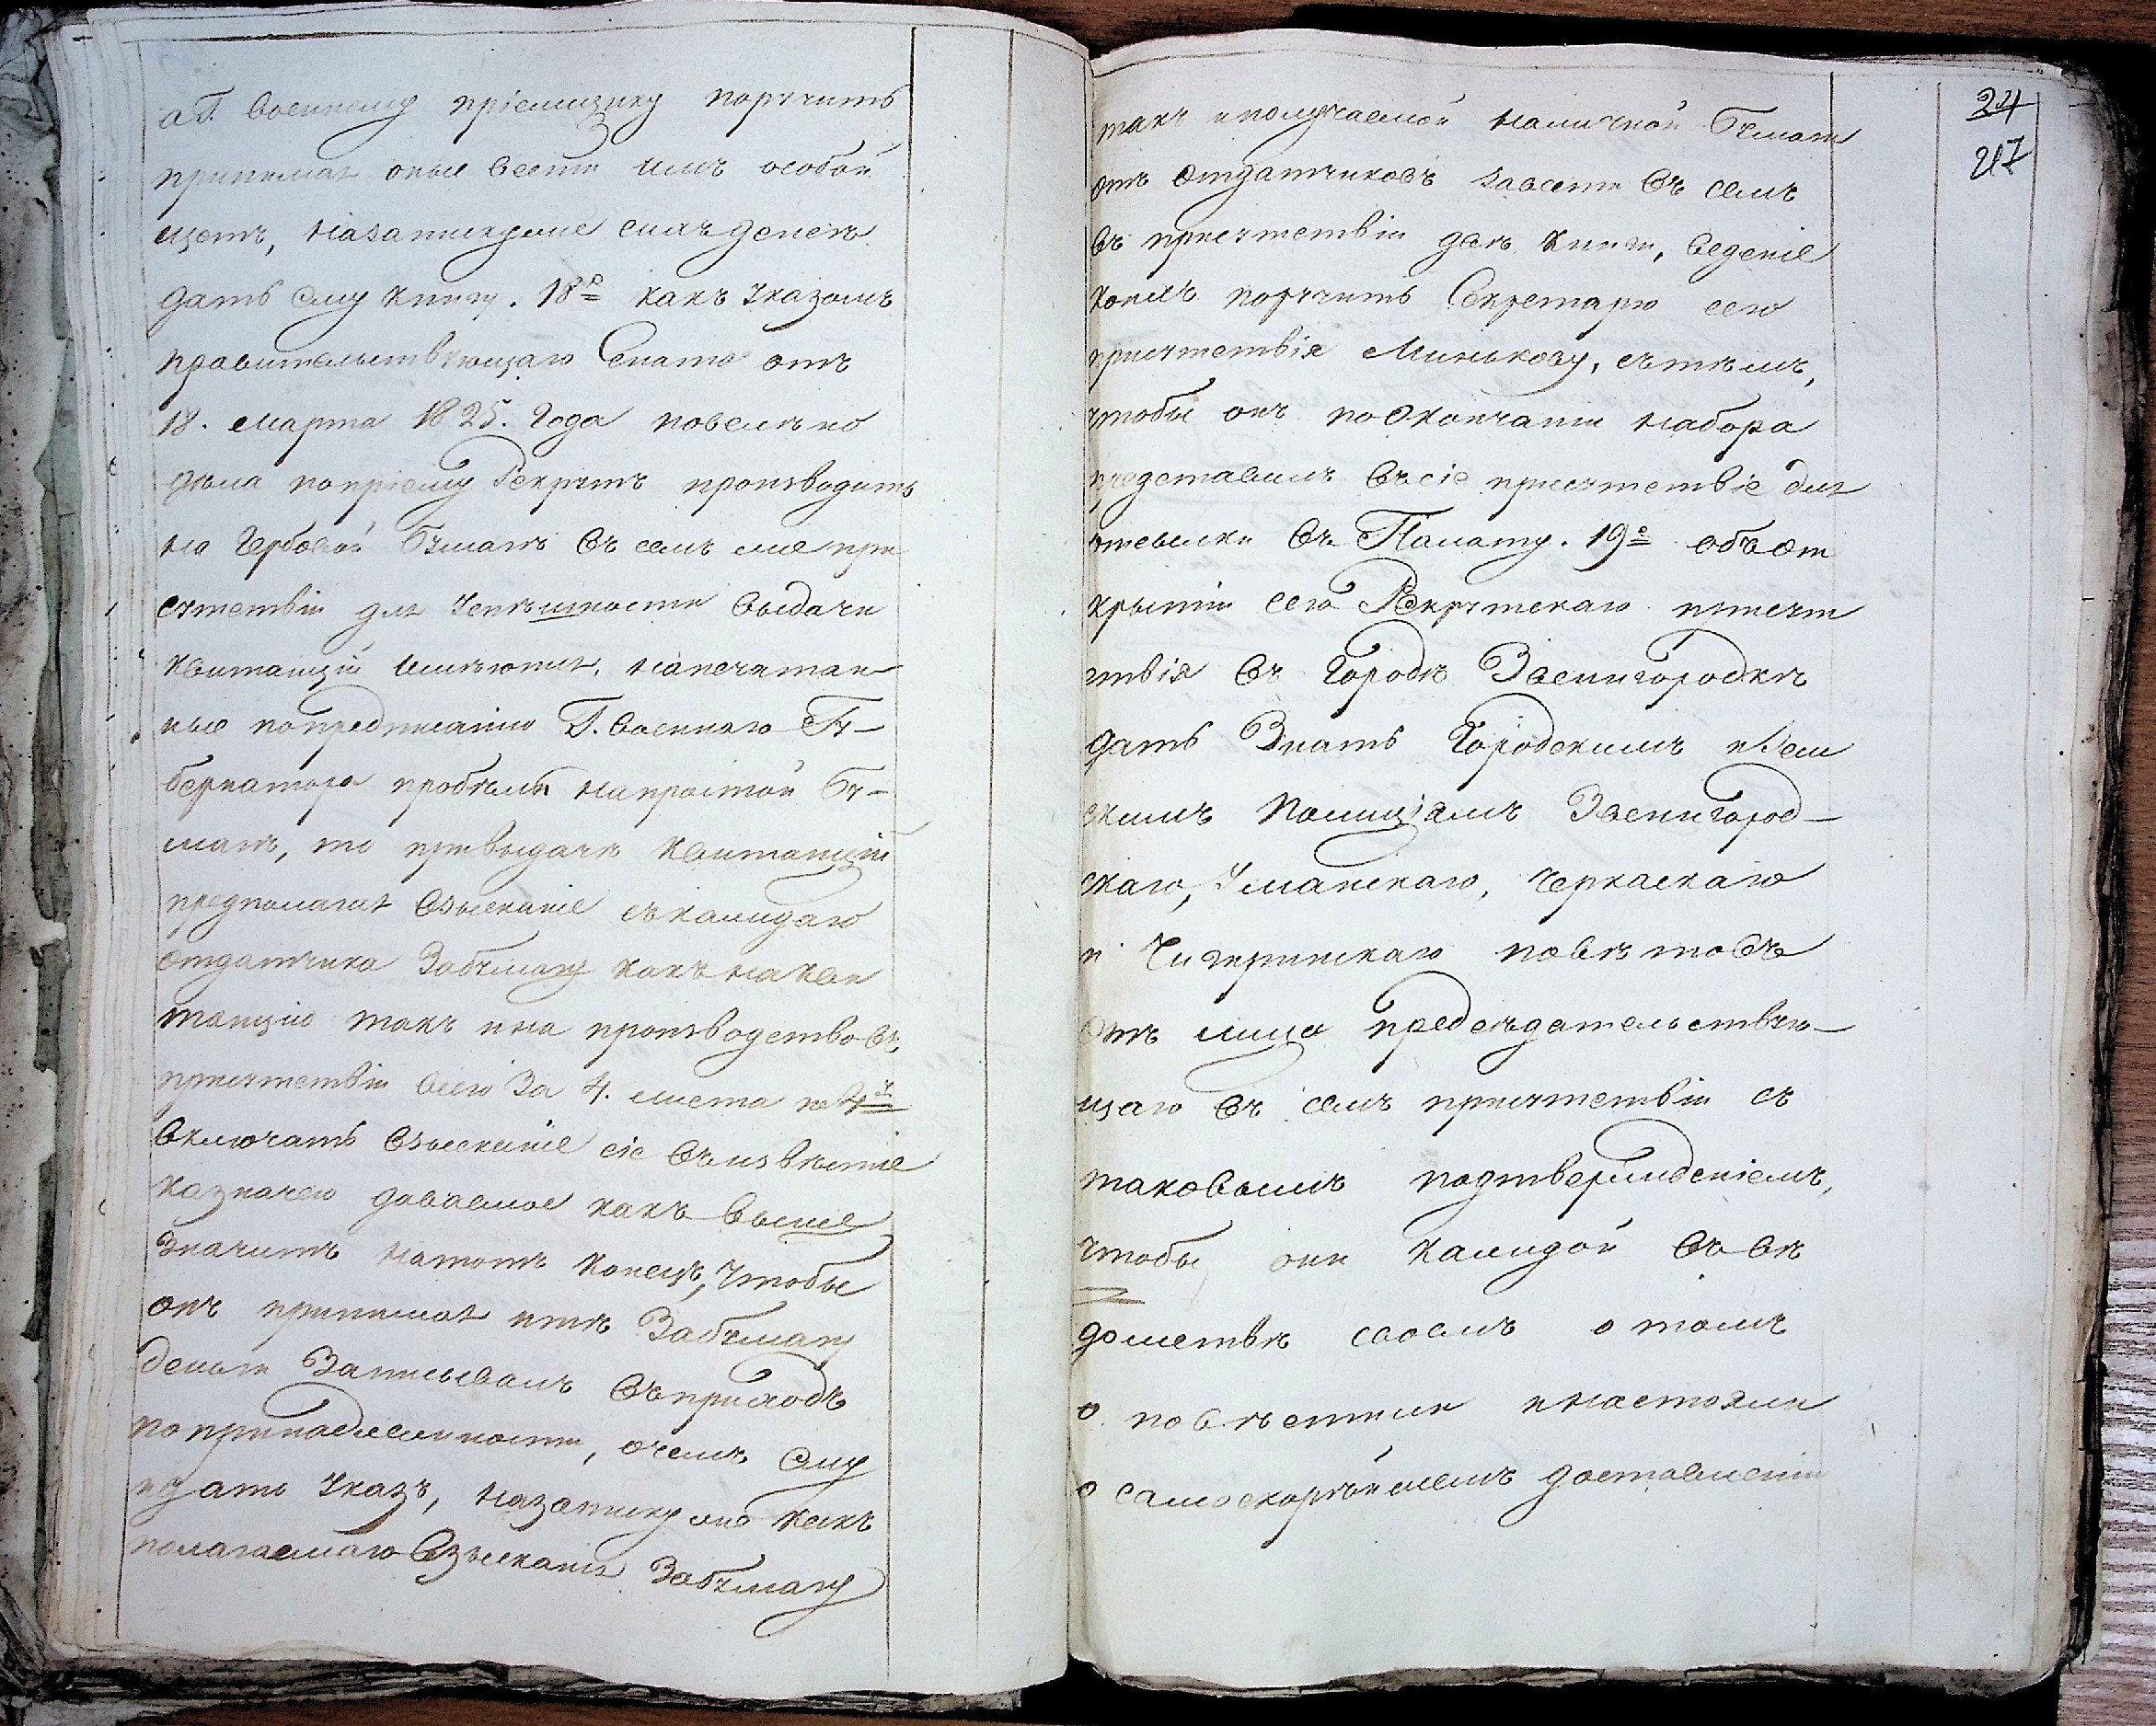 а Г. Военному пріемщику поручить
принимая оные вести имъ особой
щетъ, назаписуние сихъ денегъ
дать ему книгу. 18е какъ указомъ
правительствующаго Сената отъ
18. марта 1825. года повелено
дела попріему Рекрутъ производить
на гербовой бумагѣ въ семъ же при
сутствіи для успѣшности выдачи
квитанцій имѣются, напечатан
ные попредписанію Г. Военнаго Гу-
бернатора пробѣлы напростой бу-
магѣ, то привыдачѣ квитанцій
предполагая взысканіе скаждаго
отдатчика Забумагу какъ накви
танцію такъ ина производство въ
присутствіи всего За 4. листа по
включать взысканіе сіе въизвѣстіе
казначею даваемое какъ выше
Значитъ натотъ конецъ, чтобы
онъ принимая итѣ Забумагу
деньги Записывалъ въприходъ
попринадлежности, очемъ ему
идать указъ, назаписку какъ
полагаемаго взысканія Забумагу
24
217
такъ иполучаемой наличной бумаги
отъ отдатчиковъ завести въ семъ
въ присутствіи двѣ книги, веденіе
коихъ поручить Секретарю сего
присутствія Минькову, стѣмъ,
чтобы онъ поокончаніи набора
представилъ въсіе присутствіе для
отсылки въ Палату. 19е объот
крытіи сего Рекрутскаго присут
ствія въ городѣ Звенигородкѣ
дать Знать Городскимъ иЗем
скимъ Полиціямъ Звенигород-
скаго, Уманскаго, Черкаскаго
и Чигиринскаго повѣтовъ
Отъ лица предсѣдательствую-
щаго въ семъ присутствіи съ
таковымъ подтвержденіемъ,
чтобы они каждой въ вѣ
домствѣ своемъ о томъ
повѣстили инастояли
о самоскорѣйшемъ доставленіи